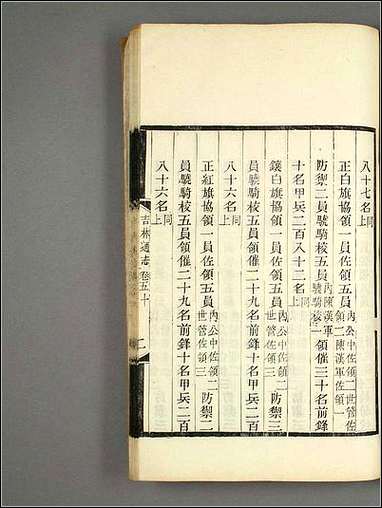 八十七名同上
正白旗協領一員佐領五員內公中佐領二世管佐領二陳漢軍佐領一
防禦二員驍騎校五員內陳漢軍驍騎校一領催三十名前鋒
十名甲兵二百八十二名同上
鑲白旗協領一員佐領五員內公中佐領二世管佐領三防禦三
員驍騎校五員領催二十九名前鋒十名甲兵二百
八十六名同上
正紅旗協領一員佐領五員內公中佐領二世管佐領三防禦二
員驍騎校五員領催二十九名前鋒十名甲兵二百
八十六名同上
吉林通志卷五十
二